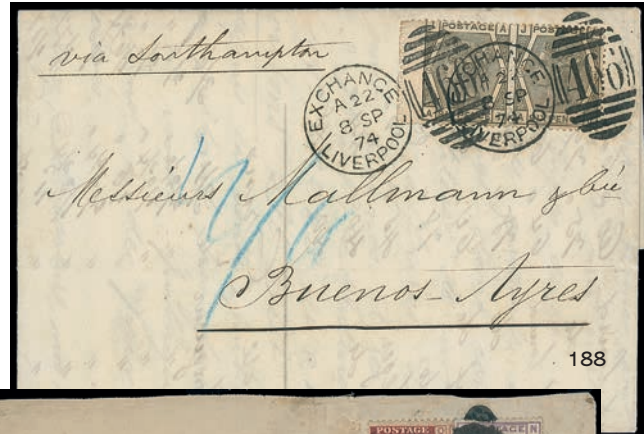 via Southampton
POSTAGE
EXCHANGE
A 22
8 SP
74
LIVERPOOL
EXCHANGE
A 22
8 SP
74
LIVERPOOL
466
466
Messieurs Mallmann y Cie
Buenos-Ayres
188
POSTAGE